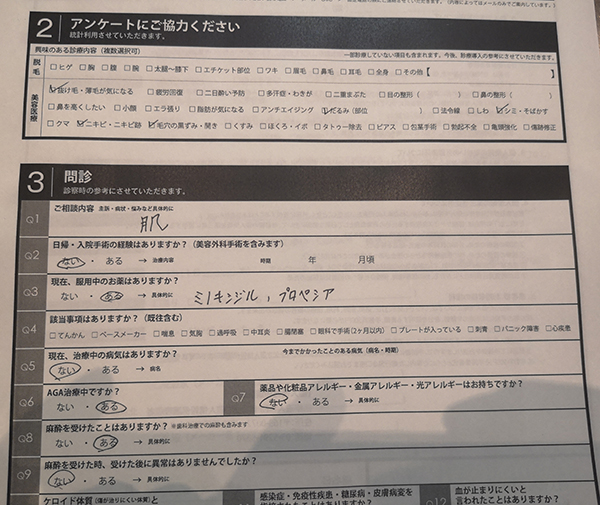 2 アンケートにご協力ください
統計利用させていただきます。
興味のある診療内容（複数選択可）
一部診療していない項目も含まれます。今後、診療導入の参考にさせていただきます。
脱毛 □ヒゲ □胸 □腹 □腕 □太腿〜膝下 □エチケット部位 □ワキ □眉毛 □鼻毛 □耳毛 □全身 □その他【
美容医療
☑抜け毛・薄毛が気になる □疲労回復 □二日酔い予防 □多汗症・わきが □二重まぶた □目の整形（ ） □鼻の整形（
□鼻を高くしたい □小顔 □エラ張り □脂肪が気になる □アンチエイジング ☑たるみ（部位 ） □法令線 □しわ ☑シミ・そばかす
□クマ ☑ニキビ・ニキビ跡 ☑毛穴の黒ずみ・開き □くすみ □ほくろ・イボ □タトゥー除去 □ピアス □包茎手術 □勃起不全 □亀頭強化 □傷跡修正
3 問診
診察時の参考にさせていただきます。
Q1 ご相談内容 主訴・病状・悩みなど具体的に
肌
Q2 日帰・入院手術の経験はありますか？（美容外科手術を含みます）
ない ・ ある → 治療内容 時期 年 月頃
Q3 現在、服用中のお薬はありますか？
ない ・ ある → 具体的に ミノキシジル、プロペシア
Q4 該当事項はありますか？（既往含む）
□てんかん □ペースメーカー □喘息 □気胸 □過呼吸 □中耳炎 □腸閉塞 □眼科で手術(2ヶ月以内) □プレートが入っている □刺青 □パニック障害 □心疾患
Q5 現在、治療中の病気はありますか？ 今までかかったことのある病気（病名・時期）
ない ・ ある → 病名
Q6 AGA治療中ですか？
ない ・ ある
Q7 薬品や化粧品アレルギー・金属アレルギー・光アレルギーはお持ちですか？
ない ・ ある → 具体的に
Q8 麻酔を受けたことはありますか？ ※歯科治療での麻酔も含みます
ない ・ ある → 具体的に
Q9 麻酔を受けた時、受けた後に異常はありませんでしたか？
ない ・ ある → 具体的に
ケロイド体質（傷が治りにくい体質）と
感染症・免疫性疾患・糖尿病・皮膚病変を
Q12 血が止まりにくいと
言われたことはありますか？